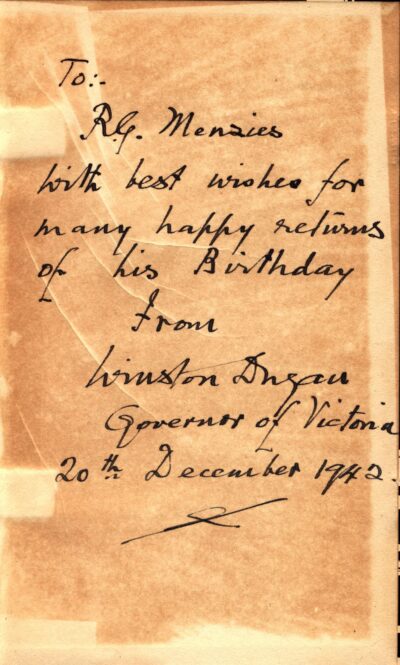 To:-
R.G. Menzies
With best wishes for
many happy returns
of his Birthday
From
Winston Dugan
Governor of Victoria
20th December 1942.